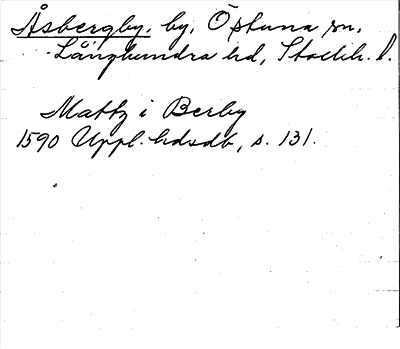 Åsbergby. by, Östuna sn,
Långhundra hd, Stockh. l.
Mattz i Berby
1590 Uppl. hdsdb, s. 131.